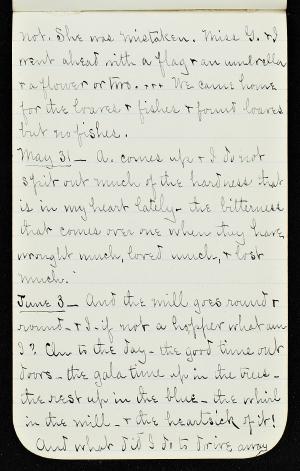 not. She was mistaken. Miss G. & I
went ahead with a flag & an umbrella
& a flower or two. ... We came home
for the loaves & fishes & found loaves
but no fishes.
May 31 — A. comes up & I do not
spit out much of the hardness that
is in my heart lately - the bitterness
that comes over one when they have
wrought much, loved much, & lost
much.
June 3 — And the mill goes round &
round - & I - if not a hopper what am
I? Oh to the day - the good time out
doors - the gala time up in the trees -
the rest up in the blue - the whirl
in the mill - & the heartsick of it!
And what did I do to drive away